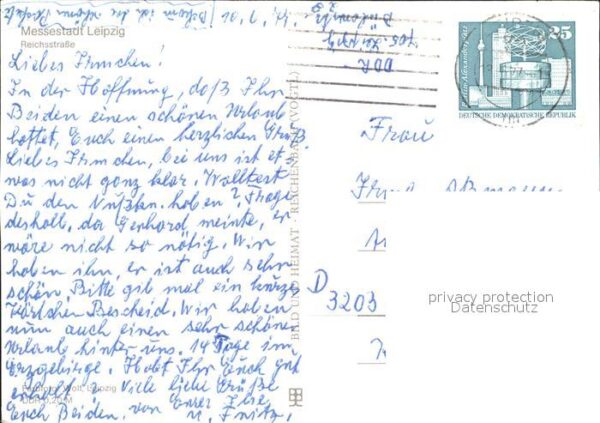 Messestadt Leipzig
Reichsstraße
10.9.77
DDR -
705 Leipzig
Liebes Irmchen!
In der Hoffnung, daß Ihr
Beiden einen schönen Urlaub
hattet, Euch einen herzlichen Gruß.
Liebes Irmchen, bei uns ist et-
was nicht ganz klar. Wolltest
Du den haben? Frage
deshalb, da Gerhard meinte, er
wäre nicht so nötig. Wir
haben ihn, er ist auch sehr
schön. Bitte gib mal ein kurzes
Kärtchen Bescheid. Wir haben
nun auch einen sehr schönen
Urlaub hinter uns. 14 Tage im
Erzgebirge. Habt Ihr Euch gut
erholt? Viele liebe Grüße
Euch Beiden, von Eurer Ilse
u. Fritz,
Leipzig
DDR
BILD UND HEIMAT REICHENBACH (VOGTL)
25
Berlin-Alexanderplatz
DEUTSCHE DEMOKRATISCHE REPUBLIK
Frau
D
3203
privacy protection
Datenschutz